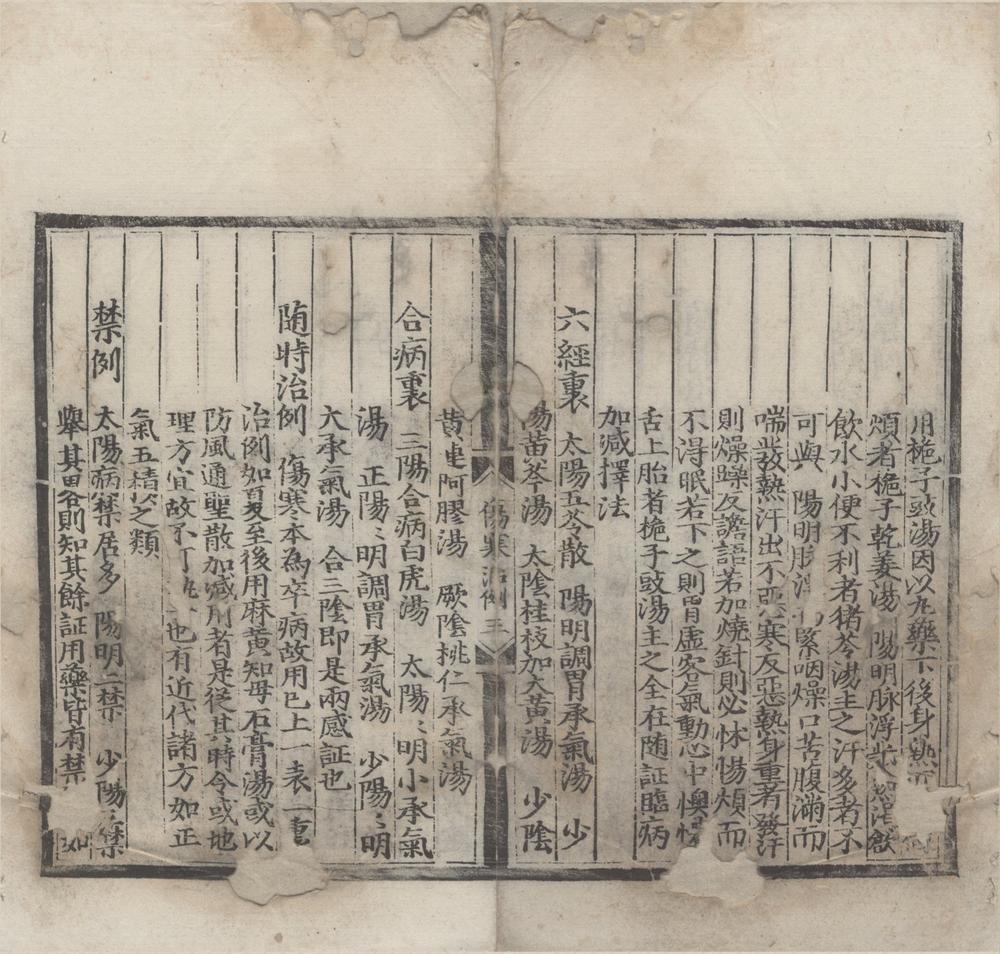 用梔子豉湯因以丸藥下後身熱
煩者梔子乾姜湯 陽明脉浮發熱渴飲
飲水小便不利者猪苓湯主之汗多者不
可與 陽明脉浮 緊咽燥口苦腹滿而
喘發熱汗出不惡寒反惡熱身重者發汗
則燥躁反譫語若加燒針則必怵惕煩而
不得眠若下之則胃虛客氣動心中懊
舌上胎者梔子豉湯主之全在随証臨病
加减擇法
六經裏 太陽五苓散 陽明調胃承氣湯 少
陽黃芩湯 太陰桂枝加大黃湯 少陰
傷寒治例 三
黃連阿膠湯 厥陰桃仁承氣湯
合病裏 三陽合病白虎湯 太陽〻明小承氣
湯 正陽〻明調胃承氣湯 少陽〻明
大承氣湯 合三陰即是兩感証也
随時治例 傷寒本為卒病故用已上一表一裏
治例如夏至後用麻黃知母石膏湯或以
防風通聖散加减用者是從其時令或地
理方宜故不可 也有近代諸方如正
氣五積以之類
禁例 太陽病禁居多 陽明二禁 少陽三禁
舉其畧則知其餘証用藥皆有禁 如